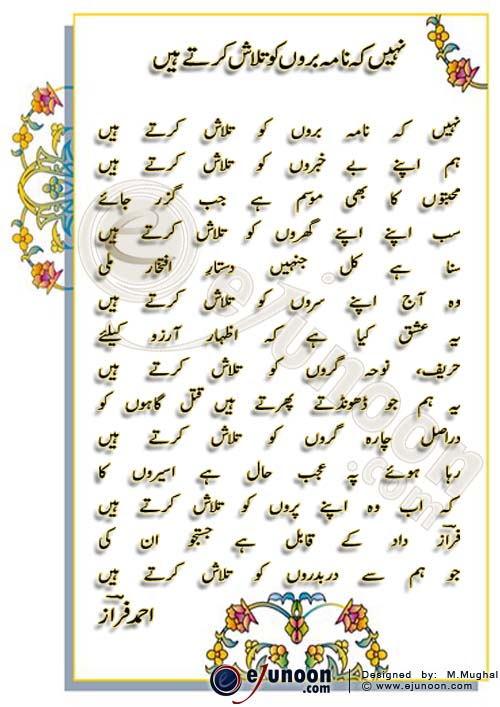 نہیں کہ نامہ بروں کو تلاش کرتے ہیں
نہیں کہ نامہ بروں کو تلاش کرتے ہیں
ہم اپنے بے خبروں کو تلاش کرتے ہیں
محبتوں کا بھی موسم ہے جب گزر جائے
سب اپنے اپنے گھروں کو تلاش کرتے ہیں
سنا ہے کل جنہیں دستارِ افتخار ملی
وہ آج اپنے سروں کو تلاش کرتے ہیں
یہ عشق کیا ہے کہ اظہار آرزو کیلئے
حریف، نوحہ گروں کو تلاش کرتے ہیں
یہ ہم جو ڈھونڈتے پھرتے ہیں قتل گاہوں کو
دراصل چارہ گروں کو تلاش کرتے ہیں
رہا ہوئے پہ عجب حال ہے اسیروں کا
کہ اب وہ اپنے پروں کو تلاش کرتے ہیں
فراؔز داد کے قابل ہے جستجو ان کی
جو ہم سے دربدروں کو تلاش کرتے ہیں
احمد فراؔز
eJunoon.com
eJunoon
.com
Designed by: M.Mughal
© www.ejunoon.com